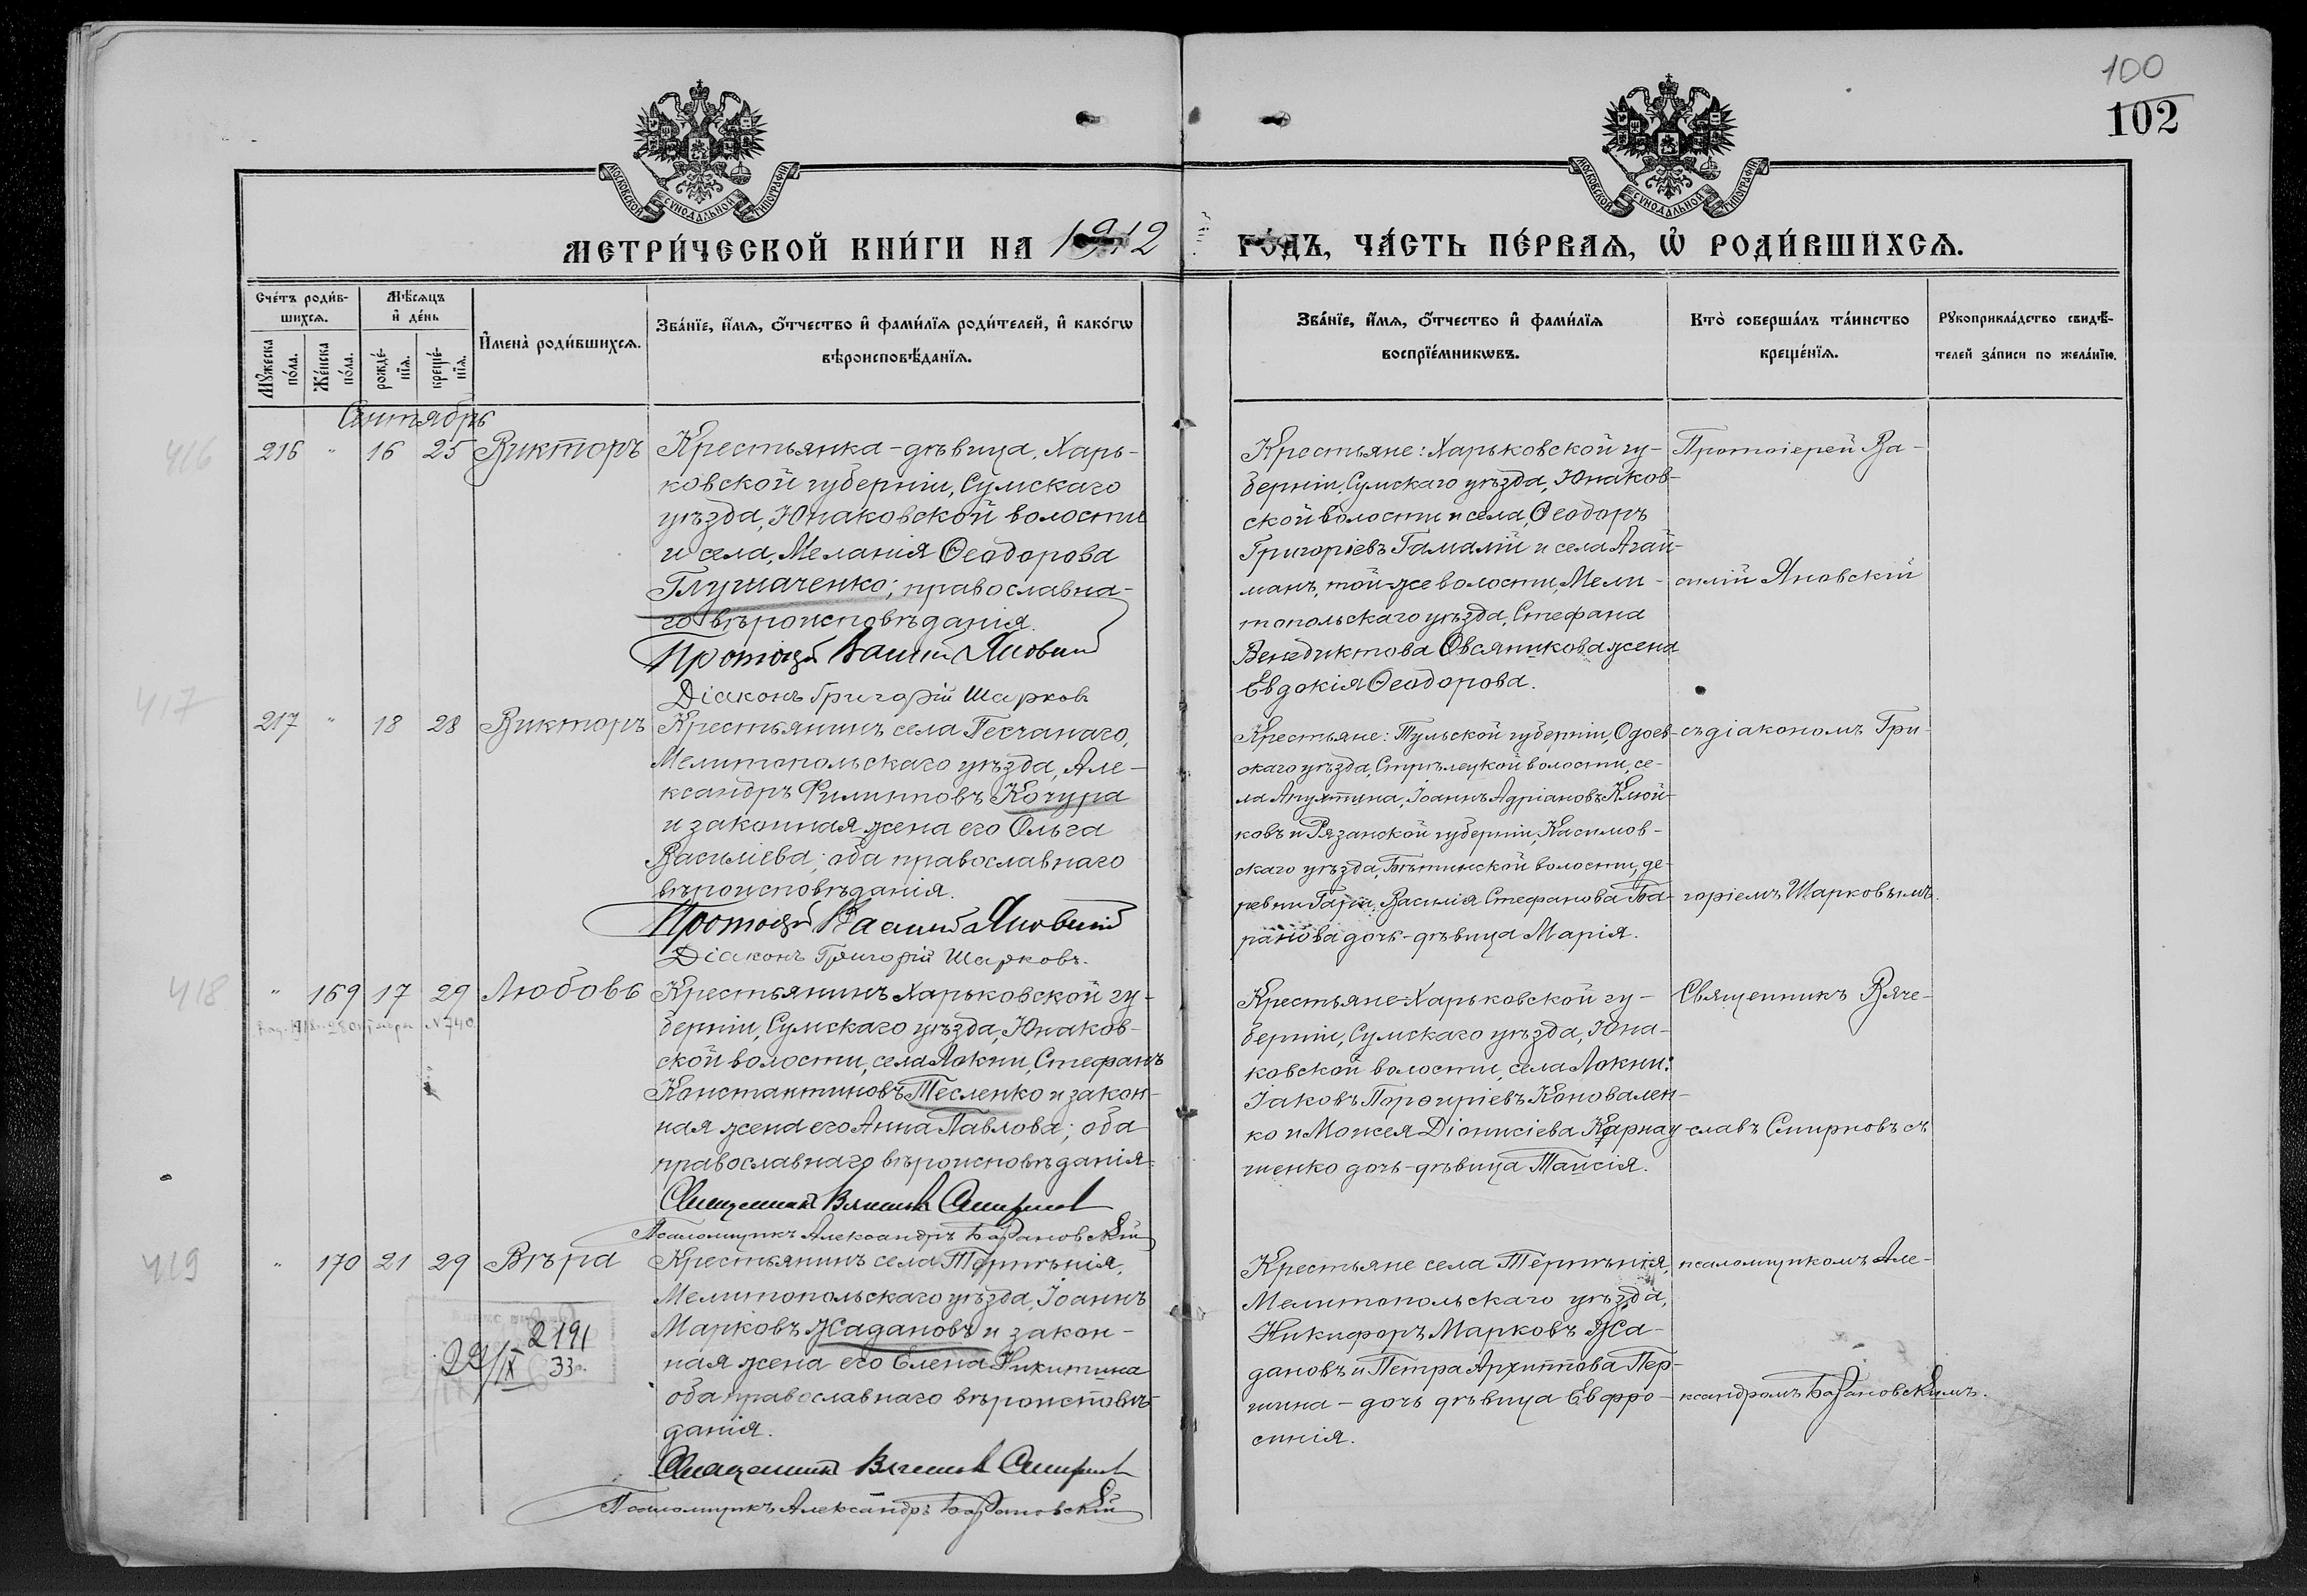 100
102
МОСКОВСКОЙ СѴНОДАЛЬНОЙ ТИПОГРАФІИ
МОСКОВСКОЙ СѴНОДАЛЬНОЙ ТИПОГРАФІИ
МЕТРИ́ЧЕСКОЙ КНИ́ГИ НА 1912
ГО́ДЪ, ЧА́СТЬ ПЕ́РВАѦ, Ѡ҆ РОДИ́ВШИХСѦ.
Сче́тъ роди́в-
шихсѧ.
Мꙋ́жеска по́ла.
Же́нска по́ла.
Мѣ́сѧцъ
и҆ де́нь
рожде́-
нїѧ.
креще́-
нїѧ.
И҆мена̀ роди́вшихсѧ.
Зва́нїе, и҆́мѧ, ѻ҆́тчество и҆ фами́лїѧ роди́телей, и҆ како́гѡ
вѣроисповѣ́данїѧ.
Зва́нїе, и҆́мѧ, ѻ҆́тчество и҆ фами́лїѧ
воспрїе́мникѡвъ.
Кто̀ соверша́лъ та́инство
креще́нїѧ.
Рꙋкоприкла́дство свидѣ́-
телей за́писи по жела́нїю.
Сентябрь
416
216 " 16 25 Викторъ
Крестьянка-дѣвица, Харь-
ковской губерніи, Сумскаго
уѣзда, Юнаковской волости
и села, Меланія Ѳеодорова
Глущаченко; православна-
го вѣроисповѣданія.
Протоіерей Василій Яновскій
Діаконъ Григорій Шарковъ
Крестьяне: Харьковской гу-
берніи, Сумскаго уѣзда, Юнаков-
ской волости и села, Ѳеодоръ
Григоріевъ Гамалій и села Агай-
манъ, той-же волости, Мели-
топольскаго уѣзда, Стефана
Венедиктова Овсяникова жена
Евдокія Ѳеодорова.
Протоіерей Ва-
силій Яновскій
417
217 " 18 28 Викторъ
Крестьянинъ села Песчанаго,
Мелитопольскаго уѣзда, Але-
ксандръ Филипповъ Кочура
и законная жена его Ольга
Василіева; оба православнаго
вѣроисповѣданія.
Протоіерей Василій Яновскій
Діаконъ Григорій Шарковъ.
Крестьяне: Тульской губерніи, Одоев-
скаго уѣзда, Стрѣлецкой волости, се-
ла Апухтина, Іоаннъ Адріановъ Клюй-
ковъ и Рязанской губерніи, Касимов-
скаго уѣзда, волости, де-
ревни Василія Стефанова Ба-
ранова дочь-дѣвица Марія.
съ діакономъ Гри-
горіемъ Шарковымъ.
418
" 169 17 29 Любовь
№ 740
Крестьянинъ Харьковской гу-
берніи, Сумскаго уѣзда, Юнаков-
ской волости, села Локни, Стефанъ
Константиновъ Тесленко и закон-
ная жена его Анна Павлова; оба
православнаго вѣроисповѣданія.
Священникъ Вячеславъ Смирновъ
Псаломщикъ Александръ Барановскій
Крестьяне Харьковской гу-
берніи, Сумскаго уѣзда, Юна-
ковской волости, села Локни:
Іаковъ Порфиріевъ Коновален-
ко и Моисея Діонисіева Карнау-
шенко дочь-дѣвица Таисія.
Священникъ Вяче-
славъ Смирновъ съ
419
" 170 21 29 Вѣра
2191
29/IX 33
Крестьянинъ села Терпѣнія,
Мелитопольскаго уѣзда, Іоаннъ
Марковъ Жадановъ и закон-
ная жена его Елена Никитина
оба православнаго вѣроисповѣ-
данія.
Священникъ Вячеславъ Смирновъ
Псаломщикъ Александръ Барановскій
Крестьяне села Терпѣнія,
Мелитопольскаго уѣзда,
Никифоръ Марковъ Жа-
дановъ и Петра Архиппова Пер-
шина - дочь дѣвица Евфро-
синія.
псаломщикомъ Але-
ксандромъ Барановскимъ.